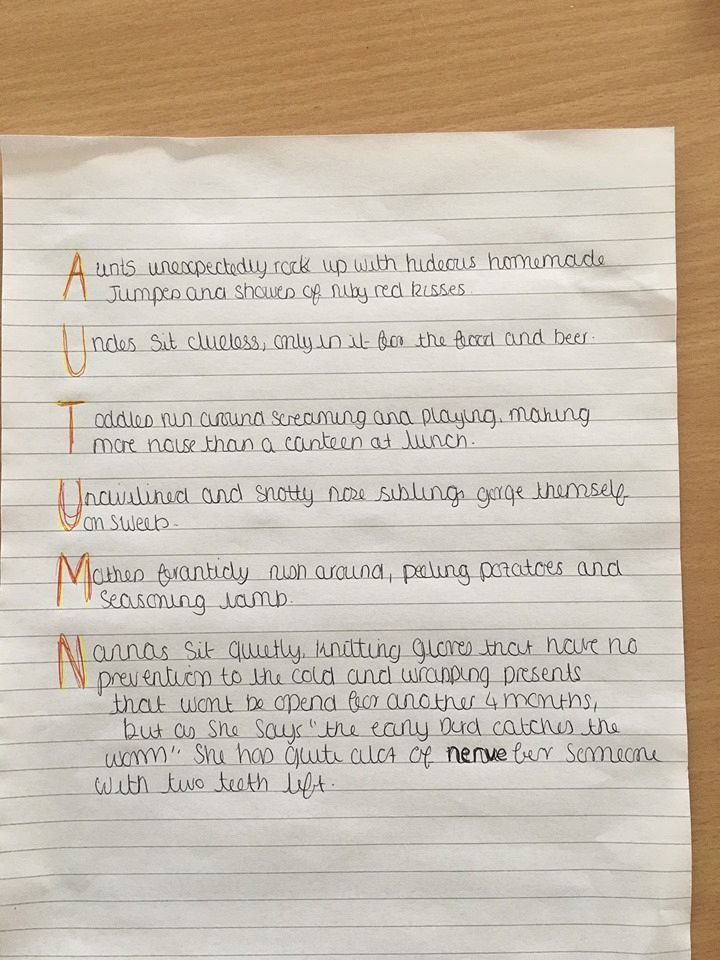 Aunts unexpectedly rock up with hideous homemade
Jumpes and showes of ruby red kisses.
Uncles sit clueless, only in it for the food and beer.
Toddles run around screaming and playing, making
more noise than a canteen at lunch.
Uncivilined and snotty noze siblings gorge themself
on sweets.
Mothes foranticly rush around, peeling potatoes and
seasoning lamb.
Nannas sit quietly, knitting gloves that have no
prevention to the cold and wrapping presents
that wont be opend for another 4 months,
but as she says "the early bird catches the
worm" She has quite alot of nerve for someone
with two teeth left.